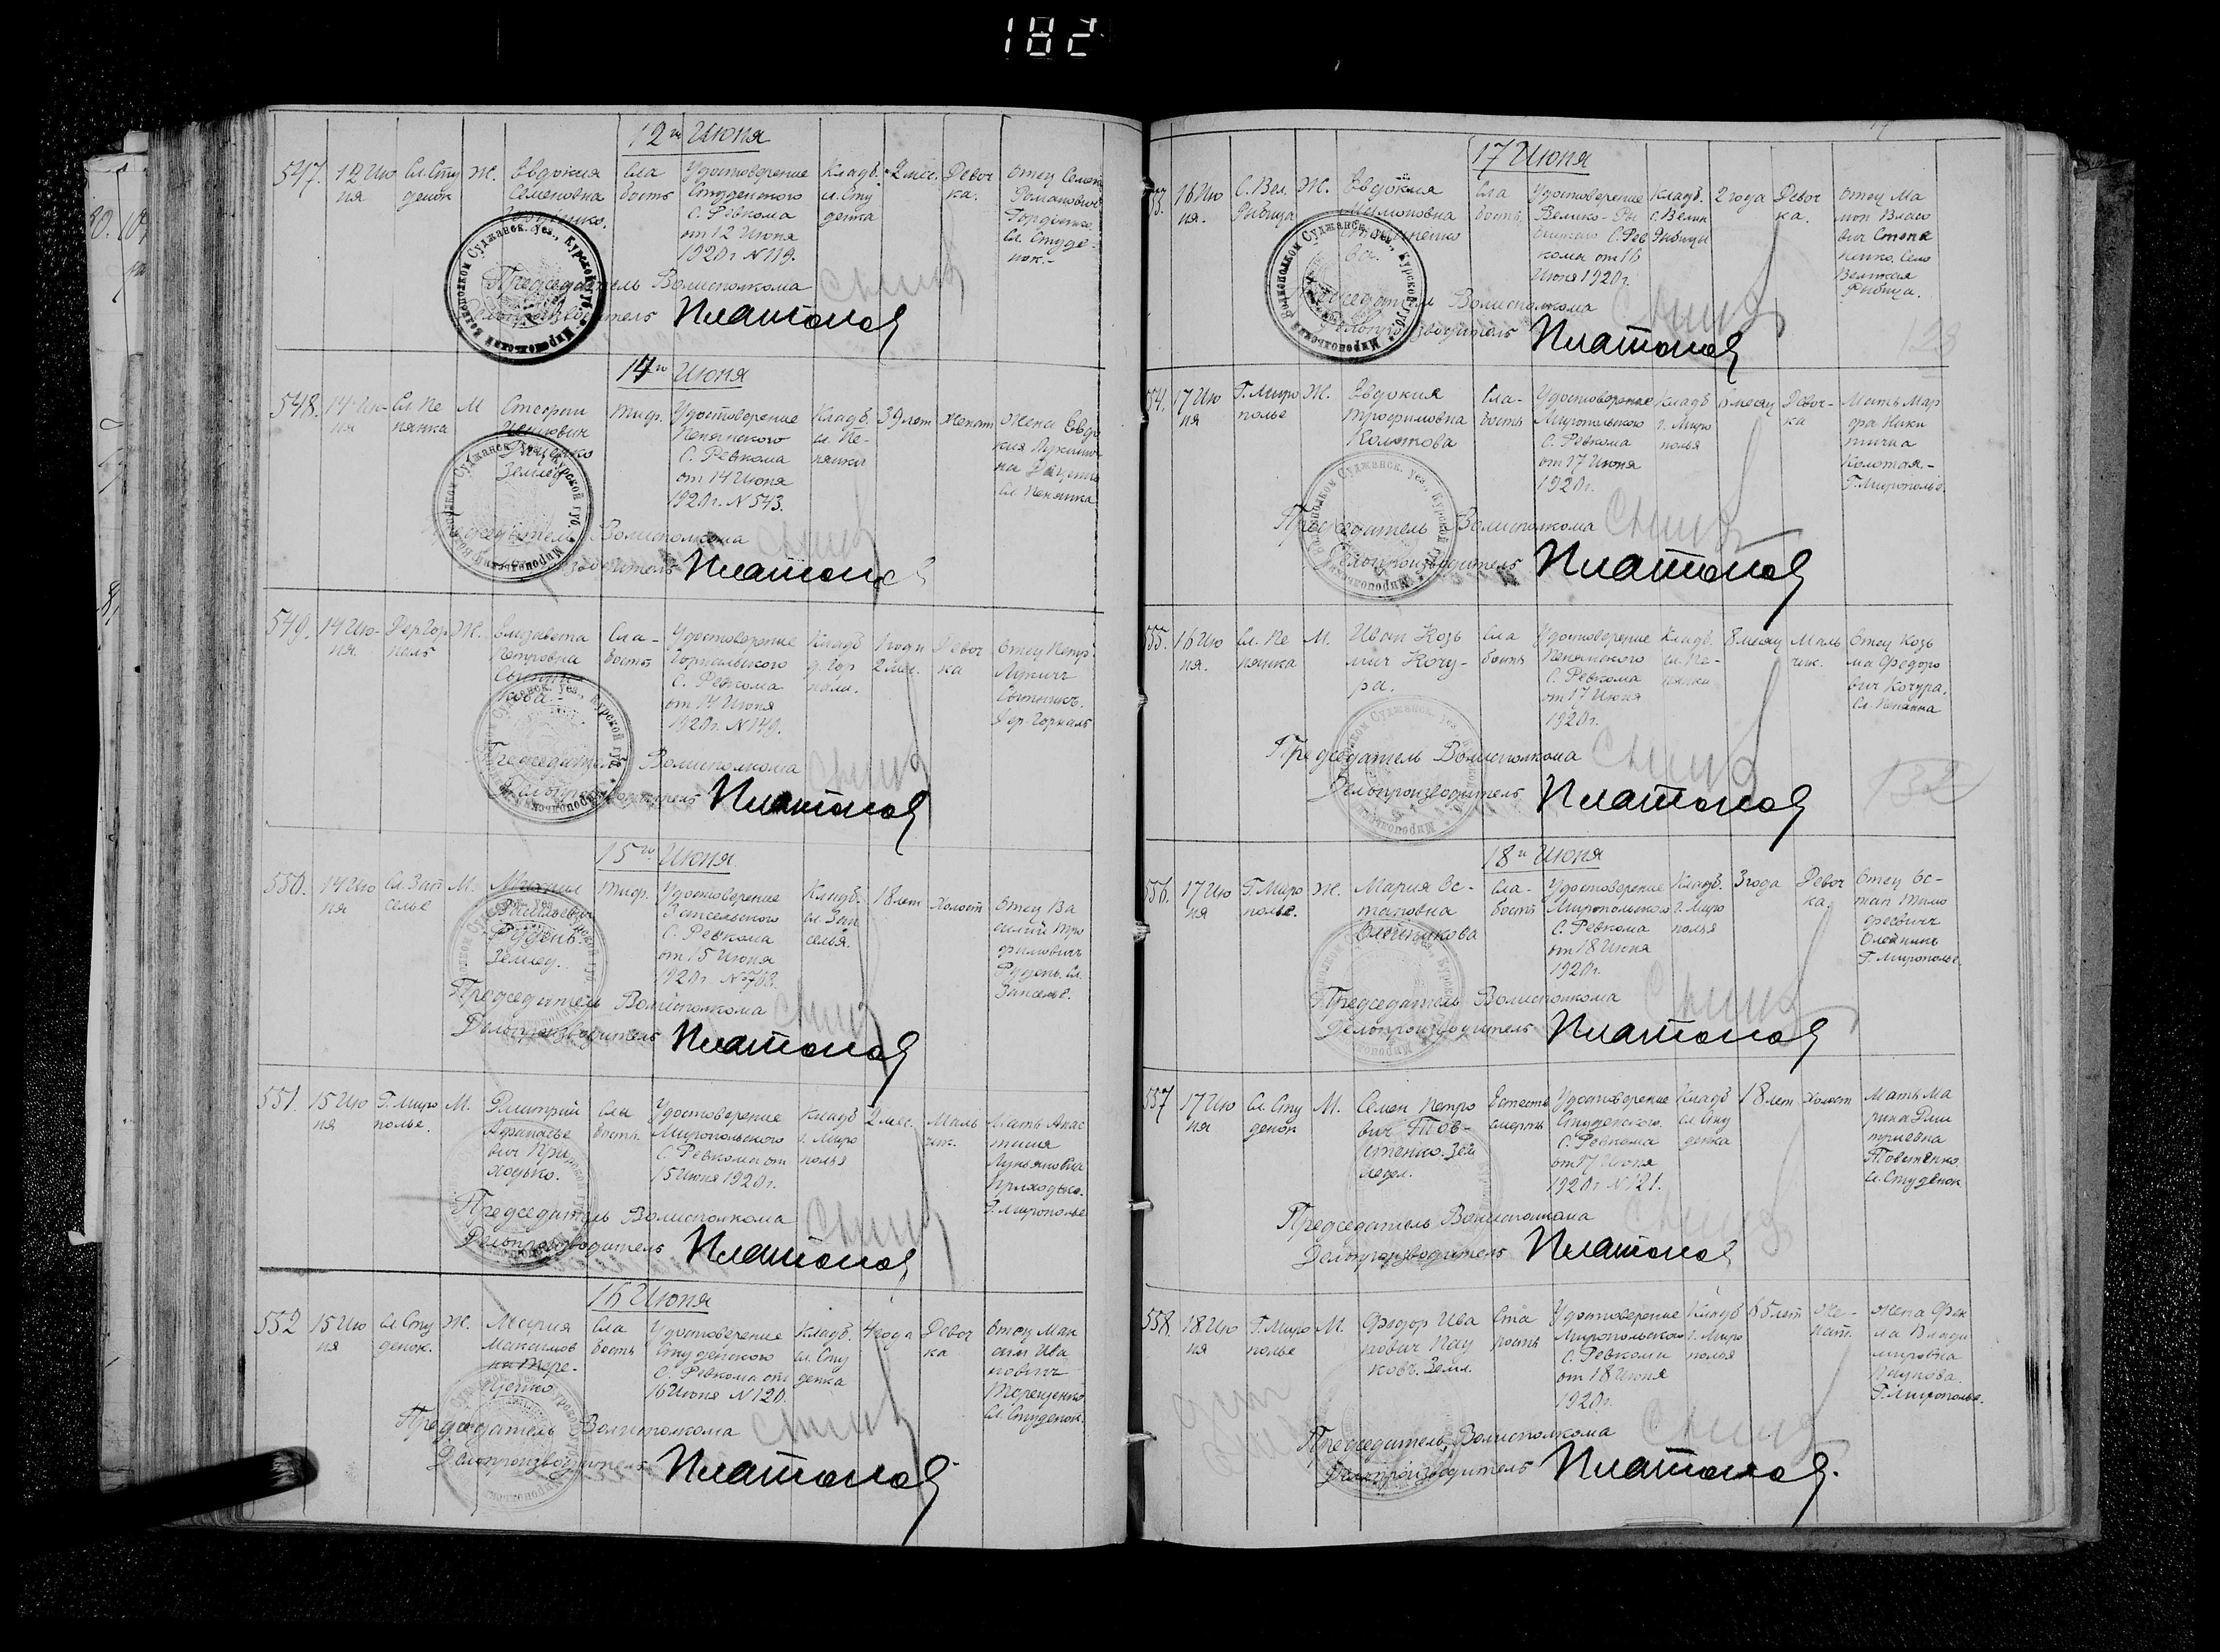 182
12го Июня
547. 12 Ию
ня
Сл. Сту
денок
Ж.
Евдокия
Семеновна
Сла
бость
Удостоверение
Студенского
С. Ревкома
от 12 Июня
1920 г. N 119.
Кладб.
сл. Сту
денка
2 мес.
Девоч
ка.
Отец Семен
Романович
Гордиенко.
Сл. Студе-
нок.-
Председатель Волисполкома
Делопроизводитель Платонов
14го Июня
548. 14 Ию-
ня
Сл. Пе
нянка
М
Стефан
Землед.
Тиф.
Удостоверение
Пенянского
С. Ревкома
от 14 Июня
1920 г. N 543.
Кладб.
сл. Пе-
нянки
39 лет
Женат
Жена Евдо
кия
Сл. Пенянка
Председатель Волисполкома
Делопроизводитель Платонов
549. 14 Ию-
ня.
Дер. Гор
наль
Ж.
Елизавета
Петровна
Сытни-
кова.-
Сла-
бость
Удостоверение
Горнальского
С. Ревкома
от 14 Июня
1920 г. N 149.
Кладб
д. Гор
нали.
1 год и
2 мес.
Девоч
ка
Отец Петр
Лукич
Сытникъ.
Дер. Горналь
Председатель Волисполкома
Делопроизводитель Платонов
15го Июня
550. 14 Ию
ня
Сл. Зап
селье
М.
Михаил
Васильевич
Рудень.
Землед.
Тиф.
Удостоверение
Запсельского
С. Ревкома
от 15 Июня
1920 г. № 708.
Кладб.
сл. Зап
селья.
18 лет
Холост
Отец Ва
силий Тро
фимович
Рудень. Сл.
Запселье.
Председатель Волисполкома
Делопроизводитель Платонов
551. 15 Ию
ня
Г. Миро
полье.
М.
Дмитрий
Афанасье
вич При
ходько.
Сла
бость.
Удостоверение
Миропольского
С. Ревкома от
15 Июня 1920 г.
Кладб
г. Миро
полья
2 мес.
Маль
чик.
Мать Анас
тасия
Лукьяновна
Приходько.
Г. Мирополье
Председатель Волисполкома
Делопроизводитель Платонов
16 Июня
552 15 Ию
ня
Сл. Сту
денок.
Ж.
Мария
Максимов
на Тере-
щенко
Сла
бость
Удостоверение
Студенского
С. Ревкома от
16 Июня N 120.
Кладб.
сл. Сту
денка
4 года
Девоч
ка
Отец Мак
сим Ива
нович
Терещенко
Сл. Студенок.
Председатель Волисполкома
Делопроизводитель Платонов
17 Июня
553. 16 Ию
ня.
С. Вел.
Рыбица
Ж.
Евдокия
Сла
бость.
Удостоверение
Велико-Ры
бицкого С. Рев
кома от 16
Июня 1920 г.
Кладб.
с. Велик
Рыбицы
2 года
Девоч
ка.
Отец Ма
мон Власо
вич Степа
ненко. Село
Великая
Рыбица.
Председатель Волисполкома
Делопроизводитель Платонов
128
554. 17 Ию
ня
Г. Миро
полье
Ж.
Евдокия
Трофимовна
Колотова
Сла-
бость
Удостоверение
Миропольского
С. Ревкома
от 17 Июня
1920 г.
Кладб
г. Миро
полья
месяц
Девоч-
ка
Мать Мар
фа Ники
тична
Колотая.-
Г. Мирополье.
Председатель Волисполкома
Делопроизводитель Платонов
555. 16 Ию
ня.
Сл. Пе
нянка
М.
Иван Козь
мич Кочу-
ра.
Сла
бость
Удостоверение
Пенянского
С. Ревкома
от 17 Июня
1920 г.
Кладб.
сл. Пе-
нянки
8 месяц
Маль
чик.
Отец Козь
ма Федоро
вич Кочура.
Сл. Пенянка
Председатель Волисполкома
Делопроизводитель Платонов
132
18го Июня
556. 17 Ию
ня
Г. Миро
полье.
Ж.
Мария Ос-
таповна
Олейникова
Сла-
бость
Удостоверение
Миропольского
С. Ревкома
от 18 Июня
1920 г.
Кладб.
г. Миро
полья
3 года
Девоч
ка
Отец Ос-
тап Тимо
феевич
Олейник
Г. Мирополье.
Председатель Волисполкома
Делопроизводитель Платонов
557 17 Ию
ня
Сл. Сту
денок
М.
Семен Петро
вич Товс-
тенко. Зем
ледел.
Естеств
смерть
Удостоверение
Студенского
С. Ревкома
от 17 Июня
1920 г. N 121.
Кладб
сл. Сту
денка
18 лет
Холост
Мать Ма
рина Дми
триевна
Товстенко.
Сл. Студенок
Председатель Волисполкома
Делопроизводитель Платонов
558. 18 Ию
ня
Г. Миро
полье
М.
Федор Ива
нович Пау
ковъ. Земл.
Ста
рость
Удостоверение
Миропольского
С. Ревкома
от 18 Июня
1920 г.
Кладб
г. Миро
полья
65 лет
Же-
нат.
Жена Фек
ла Влади
мировна
Паукова.
Г. Мирополье.
Председатель Волисполкома
Делопроизводитель Платонов.